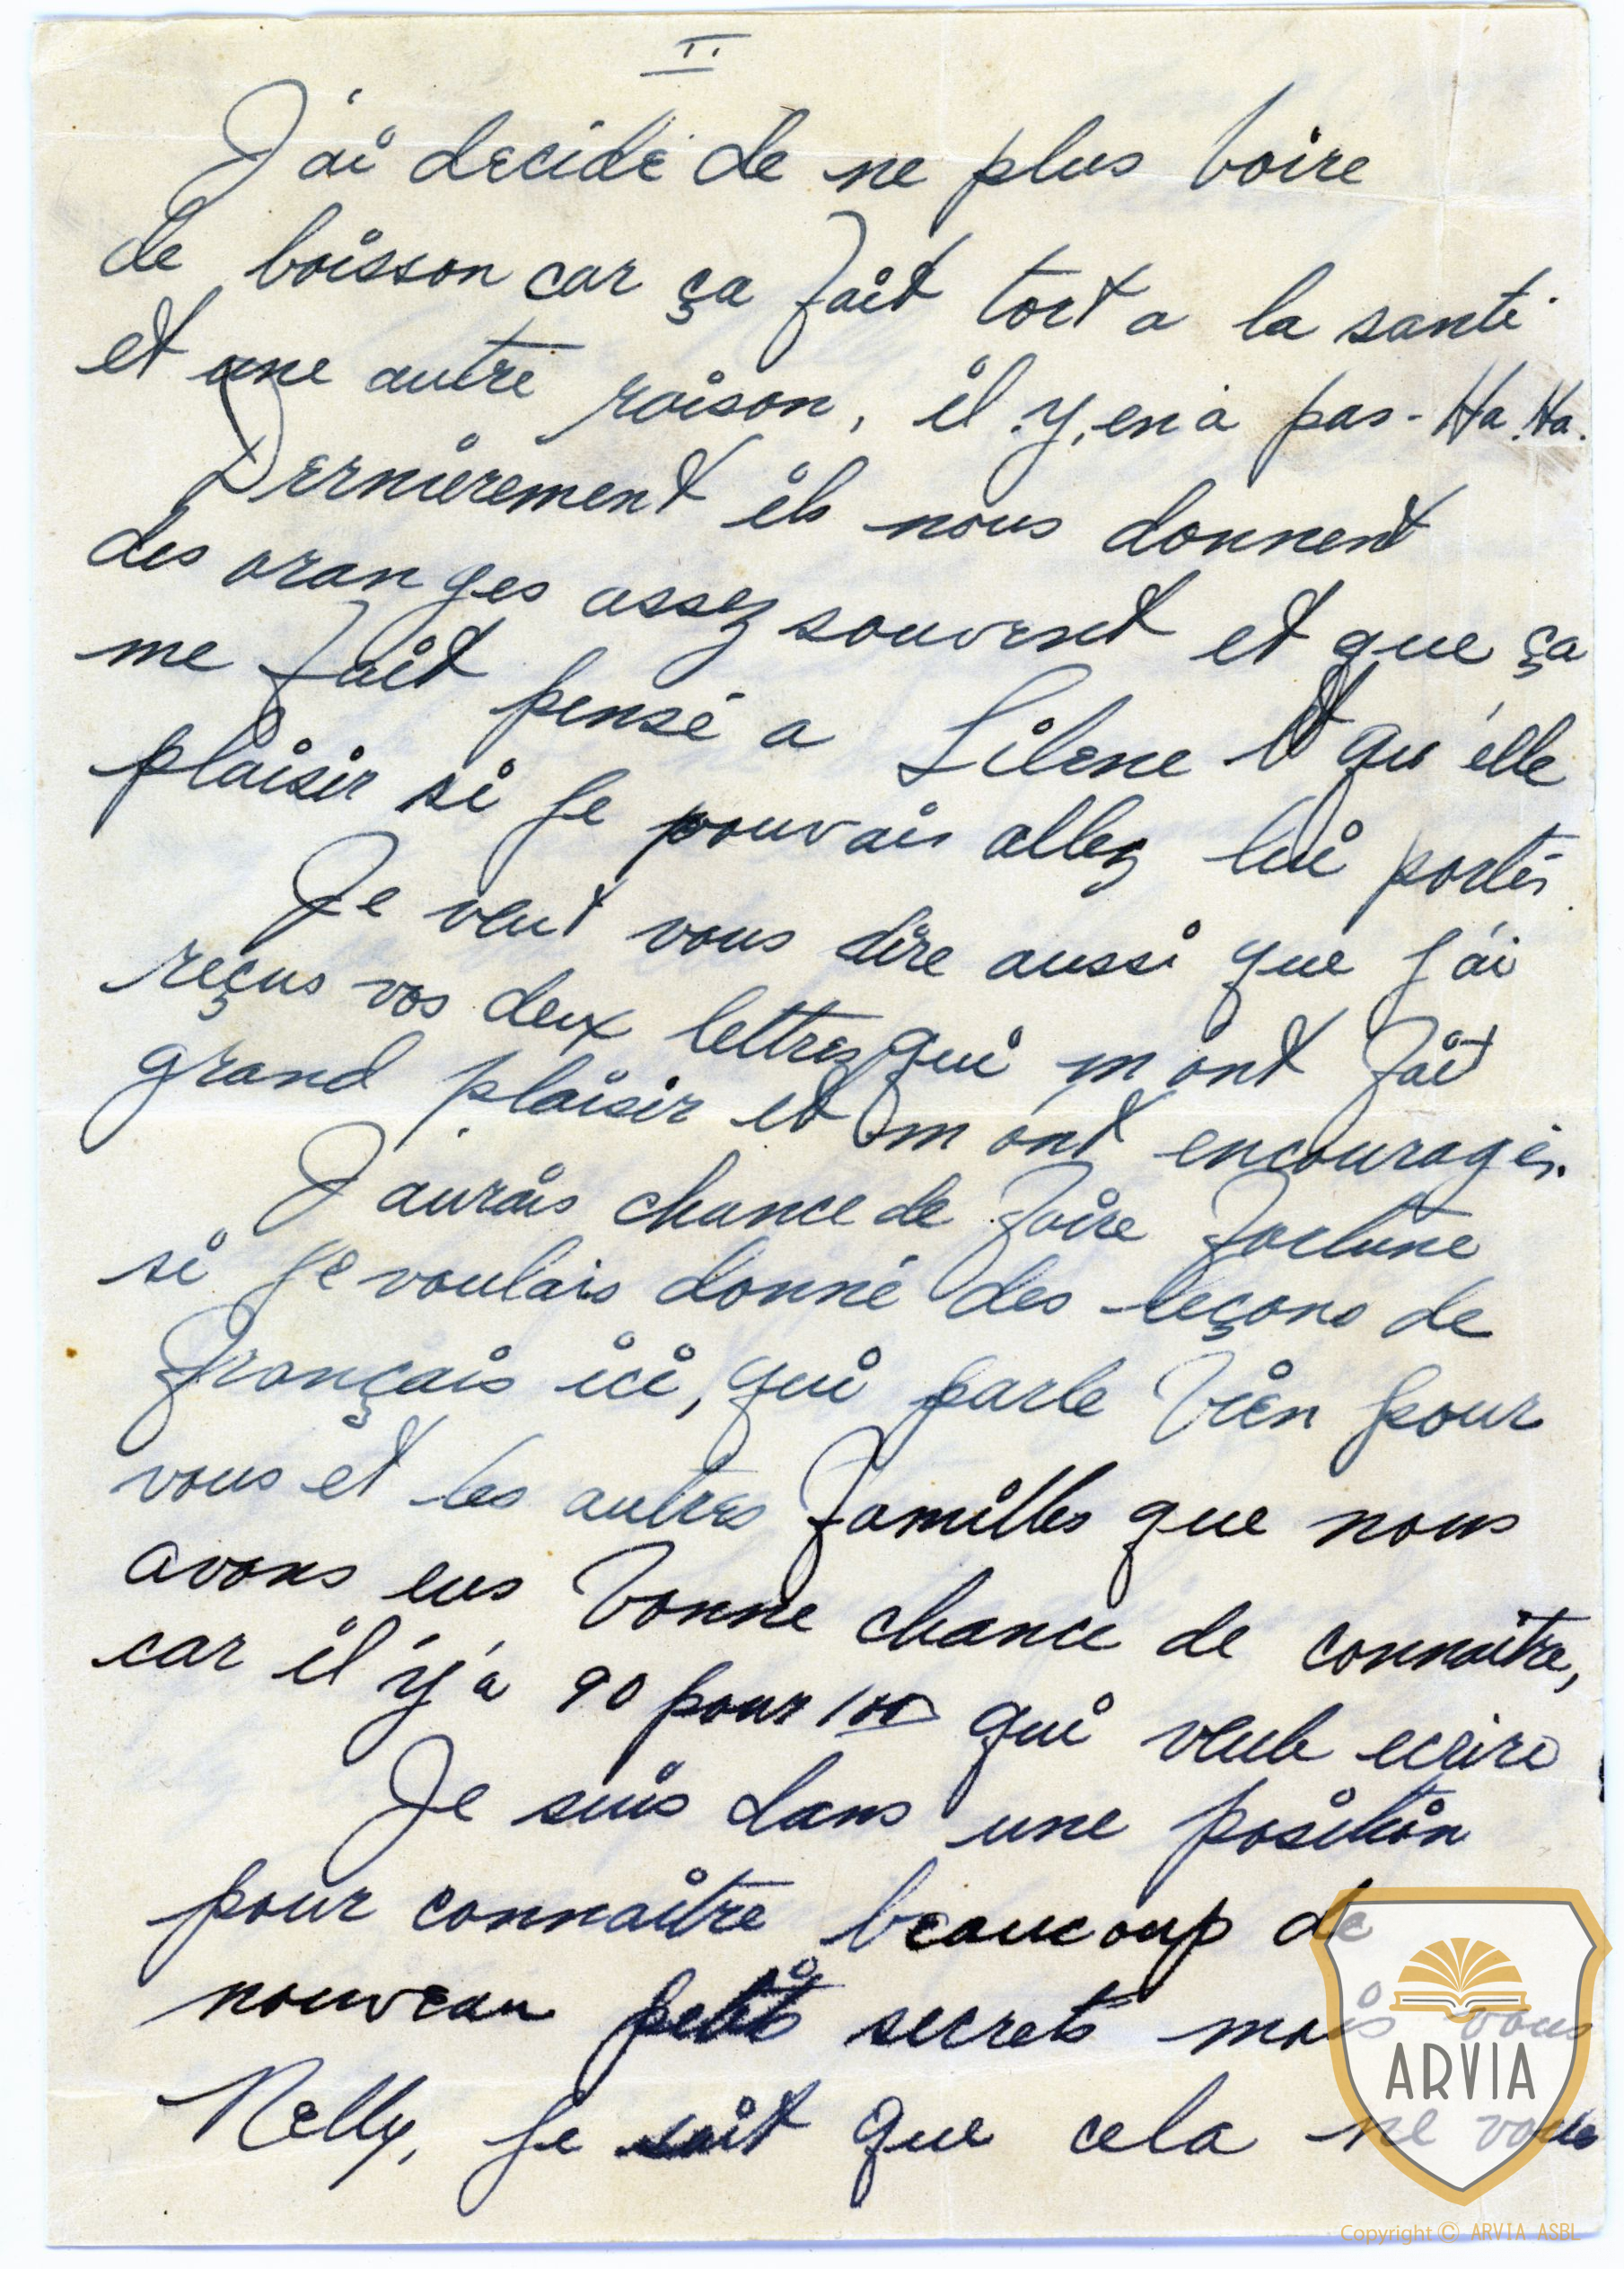 I.
J'ai decidé de ne plus boire
de boisson car ça fait tort a la santé
et une autre raison, il y, en a pas - Ha. Ha.
Dernièrement ils nous donnent
des oranges assez souvent et que ça
me fait pensé a Lilene et qu'elle
plaisir si je pouvais allez lui portés
Je veut vous dire aussi que j'ai
reçus vos deux lettres qui m'ont fait
grand plaisir et m'ont encouragés.
J'aurais chance de faire fortune
si je voulais donné des leçons de
français ici, qui parle bien pour
vous et les autres familles que nous
avons eus bonne chance de connaitre,
car il y'a 90 pour 100 qui veule ecrire
Je suis dans une position
pour connaitre beaucoup de
nouveau petits secrets mais vous
Nelly, je sait que cela ne vous
ARVIA
Copyright © ARVIA ASBL